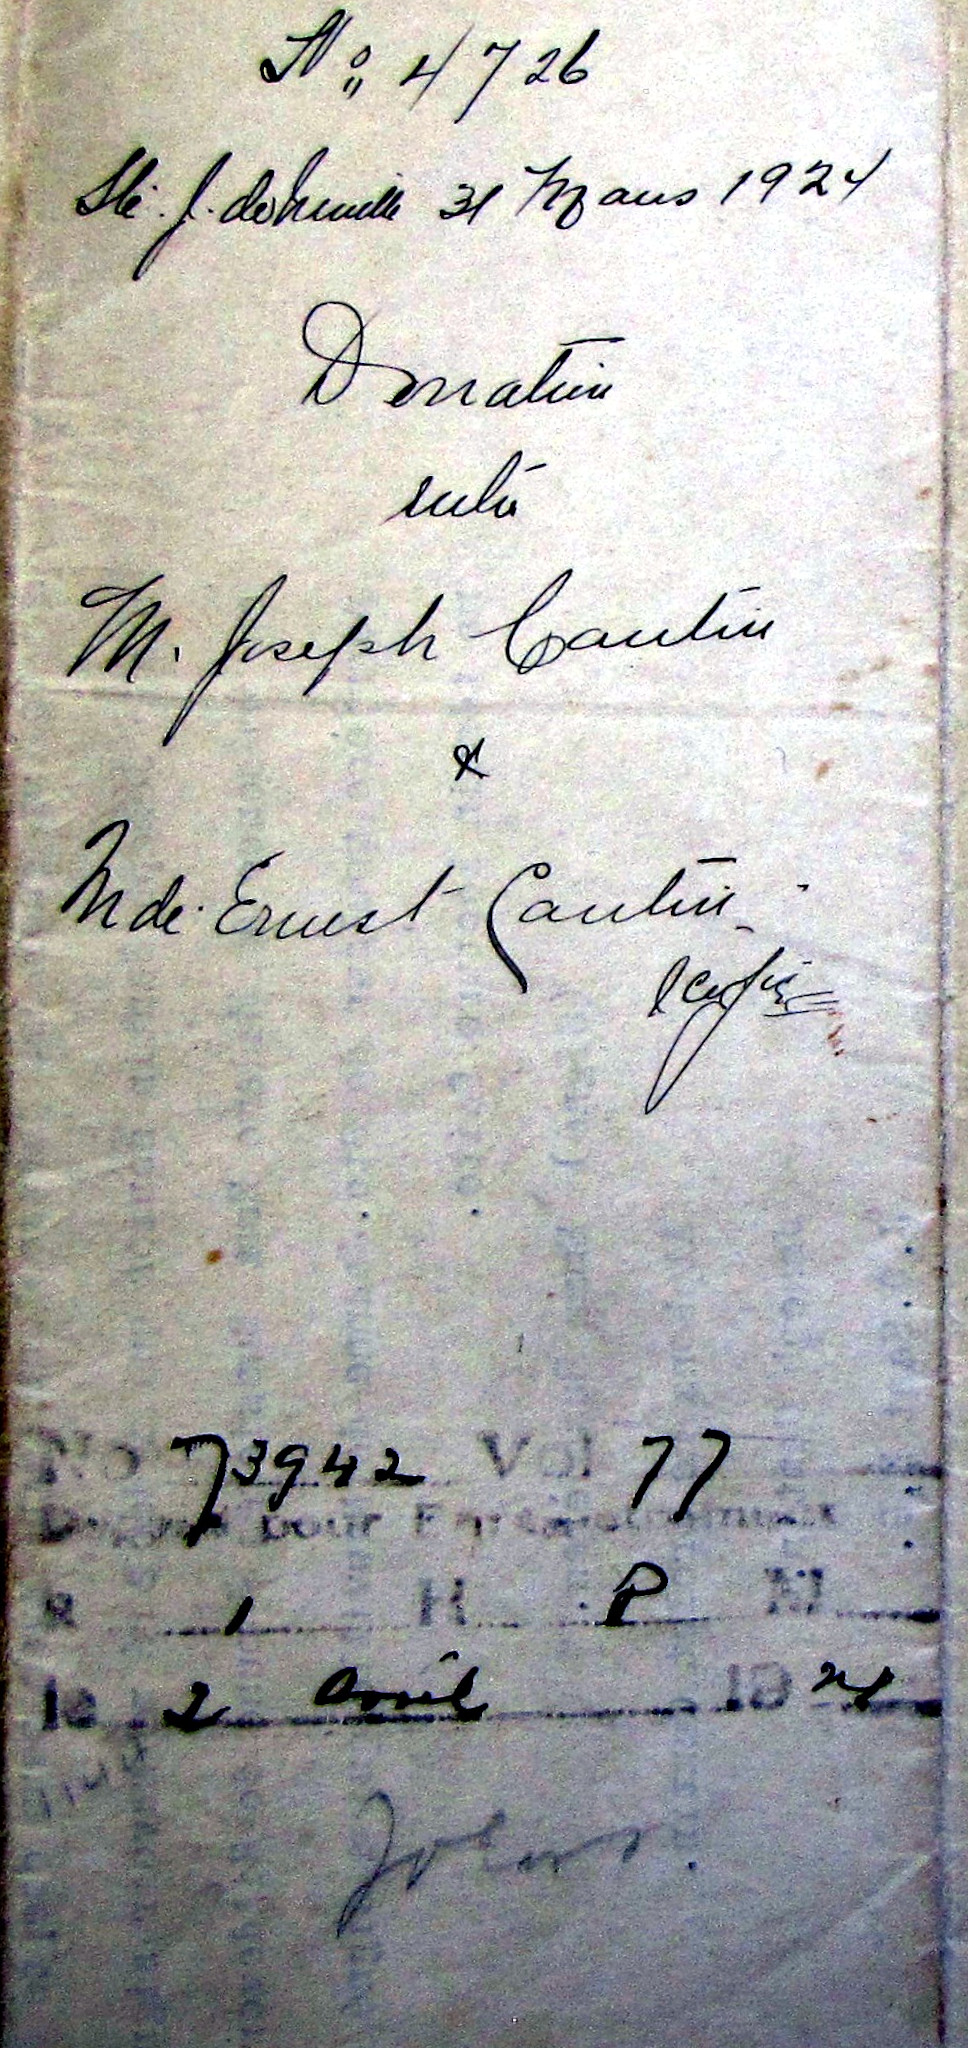 No 4726
Ste. J. de 31 Mars 1924
Donation
entre
M. Joseph Cantin
&
Mde. Ernest Cantin
No 73942 Vol 77
Depose pour Enregistrement
a 1 H P M
le 2 avril 1924